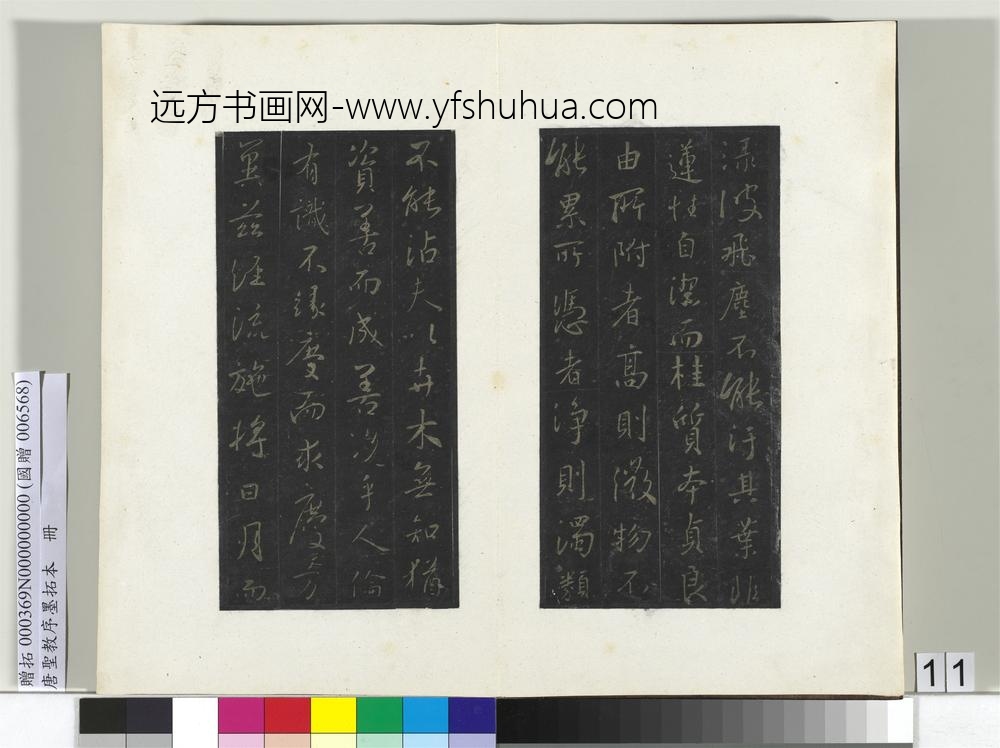 远方书画网-www.yfshuhua.com
渌波飛塵不能汙其葉非
蓮性自潔而桂質本貞良
由所附者高則微物不
能累所憑者淨則濁類
不能沾夫以卉木無知猶
資善而成善況乎人倫
有識不緣慶而求慶方
冀茲經流施將日月而
贈拓 000369N000000000 (國贈 006568)
唐聖教序墨拓本 冊
11